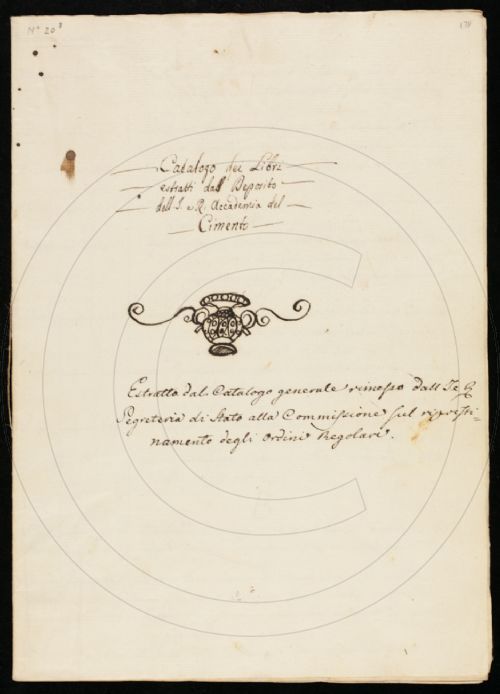 N° 20³
Catalogo dei Libri
estratti dall' Deposito
dell' I. R. Accademia del
Cimento
Estratto dal Catalogo generale rimesso dall'
Segreteria di Stato alla Commissione sul ripristi=
namento degli Ordini Regolari.